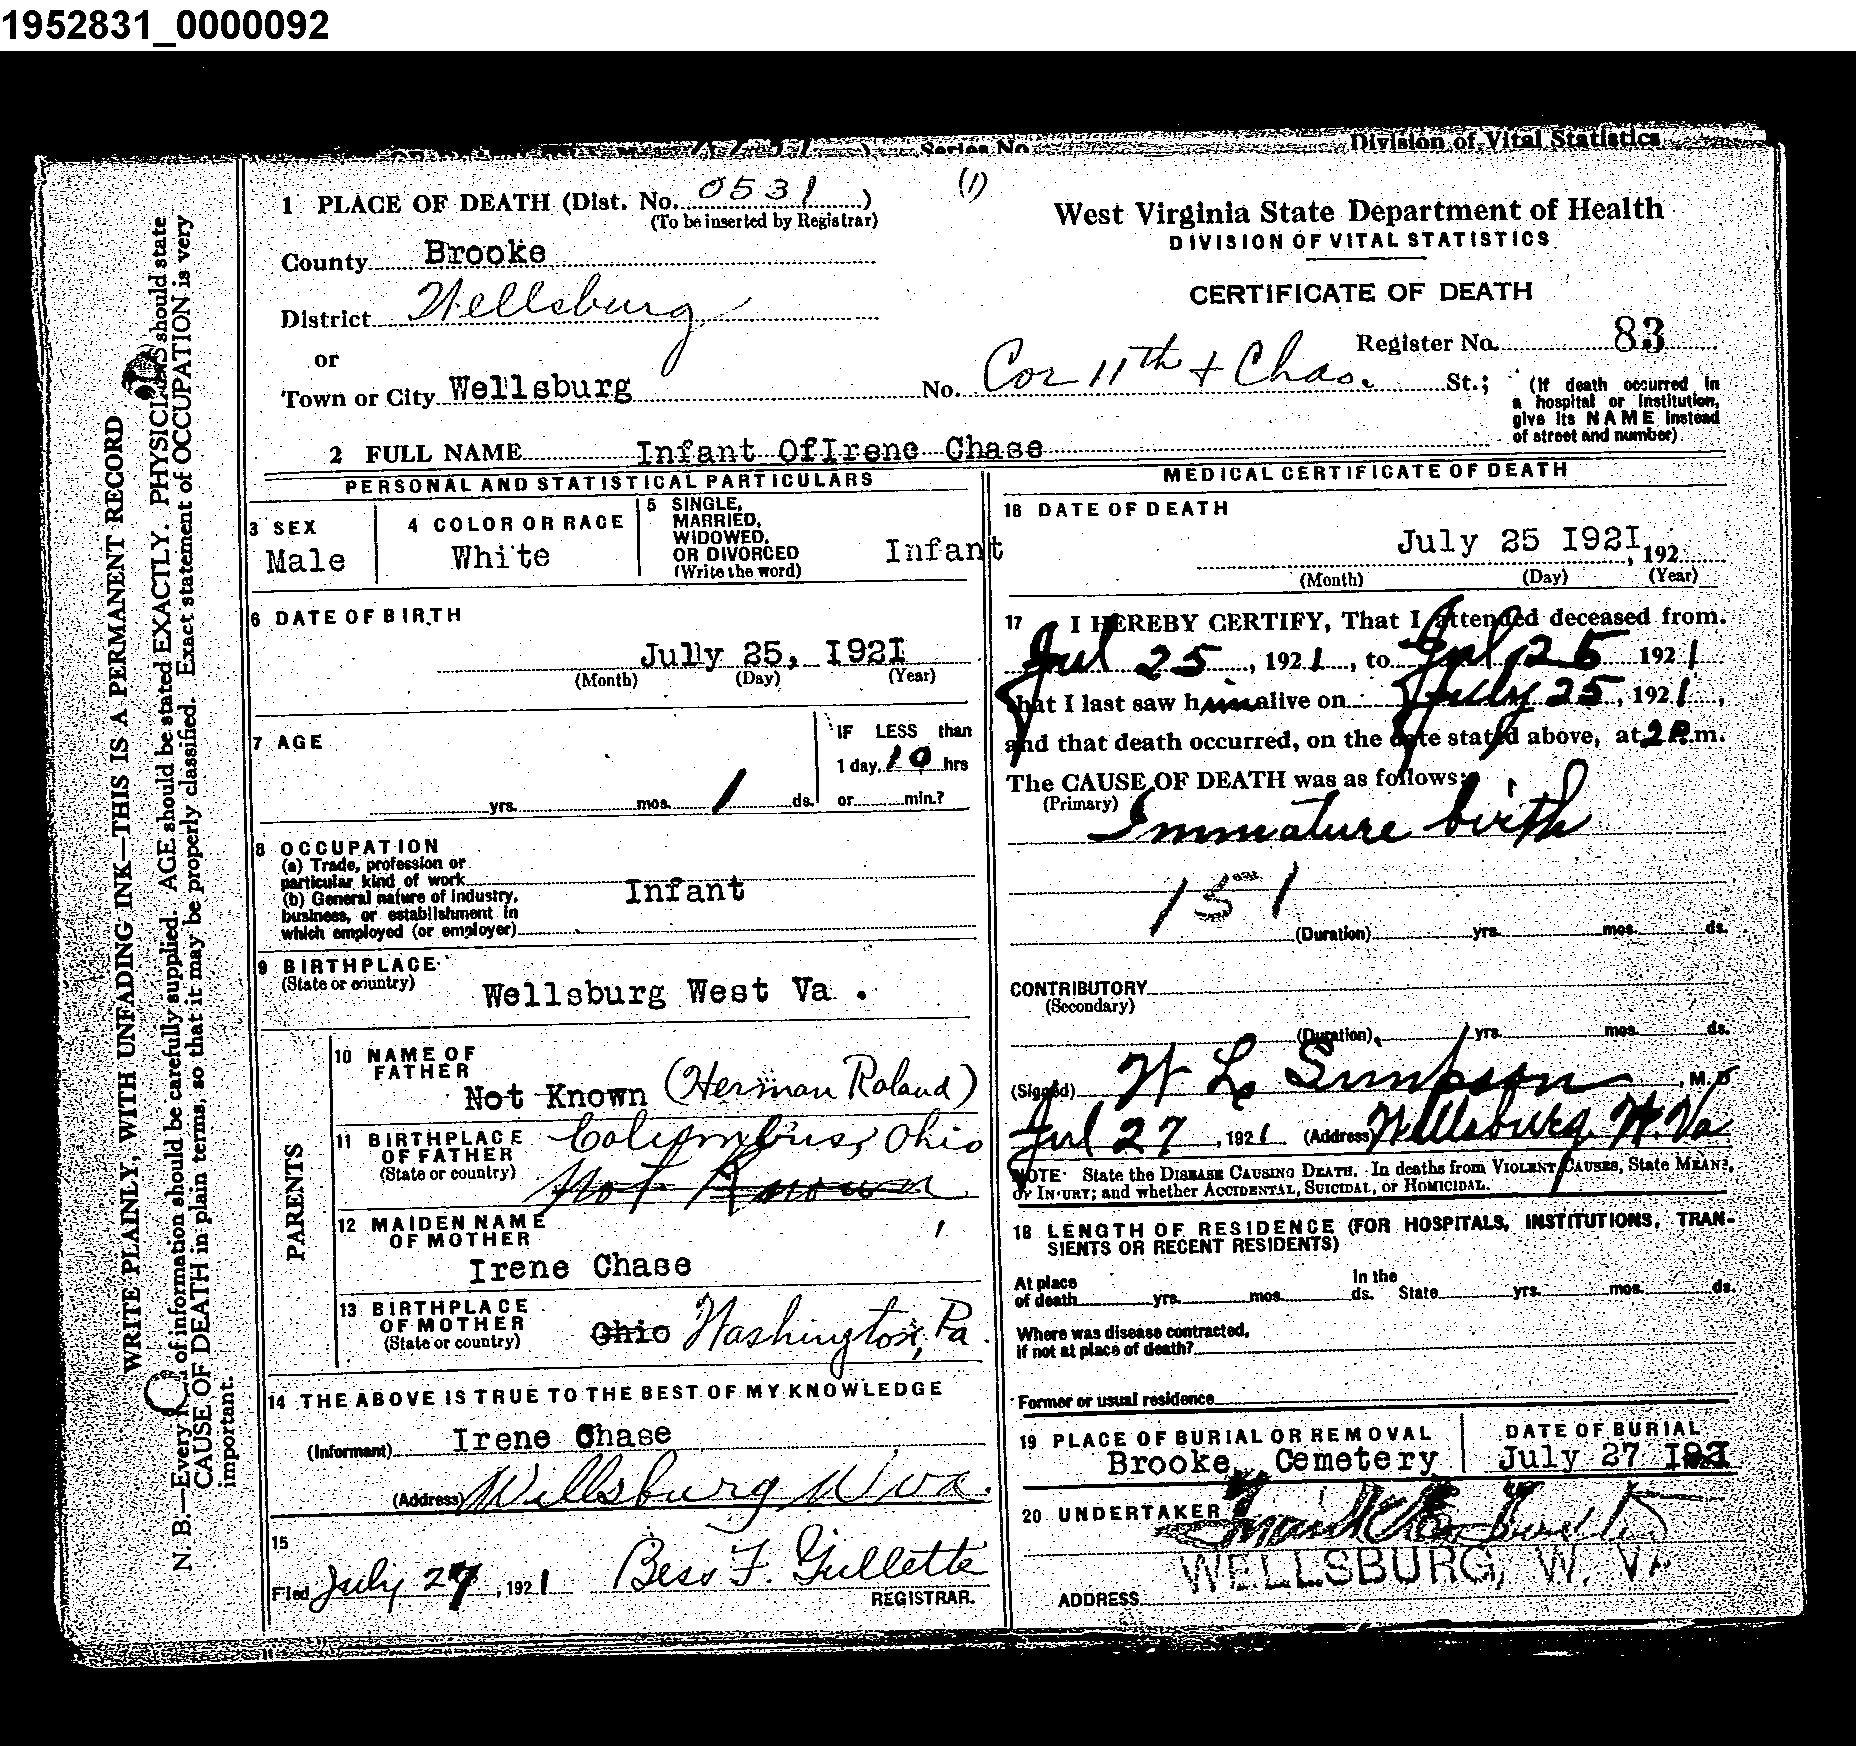 1952831_0000092
Series No.
Division of Vital Statistics
1 PLACE OF DEATH (Dist. No. 0531 )
(1)
(To be inserted by Registrar)
West Virginia State Department of Health
DIVISION OF VITAL STATISTICS
County Brooke
CERTIFICATE OF DEATH
District Wellsburg
Register No. 83
or
Town or City Wellsburg No. Cor 11th + Chas. St.;
(If death occurred in
a hospital or institution,
give its NAME instead
of street and number)
2 FULL NAME Infant OfIrene Chase
PERSONAL AND STATISTICAL PARTICULARS
3 SEX
Male
4 COLOR OR RACE
White
5 SINGLE,
MARRIED,
WIDOWED,
OR DIVORCED
(Write the word)
Infant
6 DATE OF BIRTH
July 25, I92I
(Month) (Day) (Year)
7 AGE
yrs. mos. 1 ds.
IF LESS than
1 day, 10 hrs
or min.?
8 OCCUPATION
(a) Trade, profession or
particular kind of work
(b) General nature of industry,
business, or establishment in
which employed (or employer)
Infant
9 BIRTHPLACE
(State or country)
Wellsburg West Va .
PARENTS
10 NAME OF
FATHER
Not Known (Herman Roland)
11 BIRTHPLACE
OF FATHER
(State or country)
Columbus, Ohio
Not Known
12 MAIDEN NAME
OF MOTHER
Irene Chase
13 BIRTHPLACE
OF MOTHER
(State or country)
Ohio Washington, Pa.
14 THE ABOVE IS TRUE TO THE BEST OF MY KNOWLEDGE
(Informant) Irene Chase
(Address) Wellsburg W Va.
15
Filed July 27, 1921 Bess F. Gullette
REGISTRAR.
MEDICAL CERTIFICATE OF DEATH
16 DATE OF DEATH
July 25 I92I, 192
(Month) (Day) (Year)
17 I HEREBY CERTIFY, That I attended deceased from
Jul 25, 1921, to Jul 25 1921
that I last saw him alive on July 25, 1921,
and that death occurred, on the date stated above, at 2 P.m.
The CAUSE OF DEATH was as follows:
(Primary)
Immature birth
151
(Duration) yrs. mos. ds.
CONTRIBUTORY
(Secondary)
(Duration) yrs. mos. ds.
(Signed) W L Simpson, M.D
Jul 27, 1921 (Address) Wellsburg W. Va
NOTE State the DISEASE CAUSING DEATH. In deaths from VIOLENT CAUSES, State MEANS,
OF INJURY; and whether ACCIDENTAL, SUICIDAL, or HOMICIDAL.
18 LENGTH OF RESIDENCE (FOR HOSPITALS, INSTITUTIONS, TRAN-
SIENTS OR RECENT RESIDENTS)
At place
of death yrs. mos. ds.
In the
State yrs. mos. ds.
Where was disease contracted,
if not at place of death?
Former or usual residence
19 PLACE OF BURIAL OR REMOVAL
Brooke Cemetery
DATE OF BURIAL
July 27 I921
20 UNDERTAKER
WELLSBURG, W. VA
ADDRESS
WRITE PLAINLY, WITH UNFADING INK—THIS IS A PERMANENT RECORD
N. B.—Every of information should be carefully supplied. AGE should be stated EXACTLY. PHYSICIANS should state
CAUSE OF DEATH in plain terms, so that it may be properly classified. Exact statement of OCCUPATION is very
important.